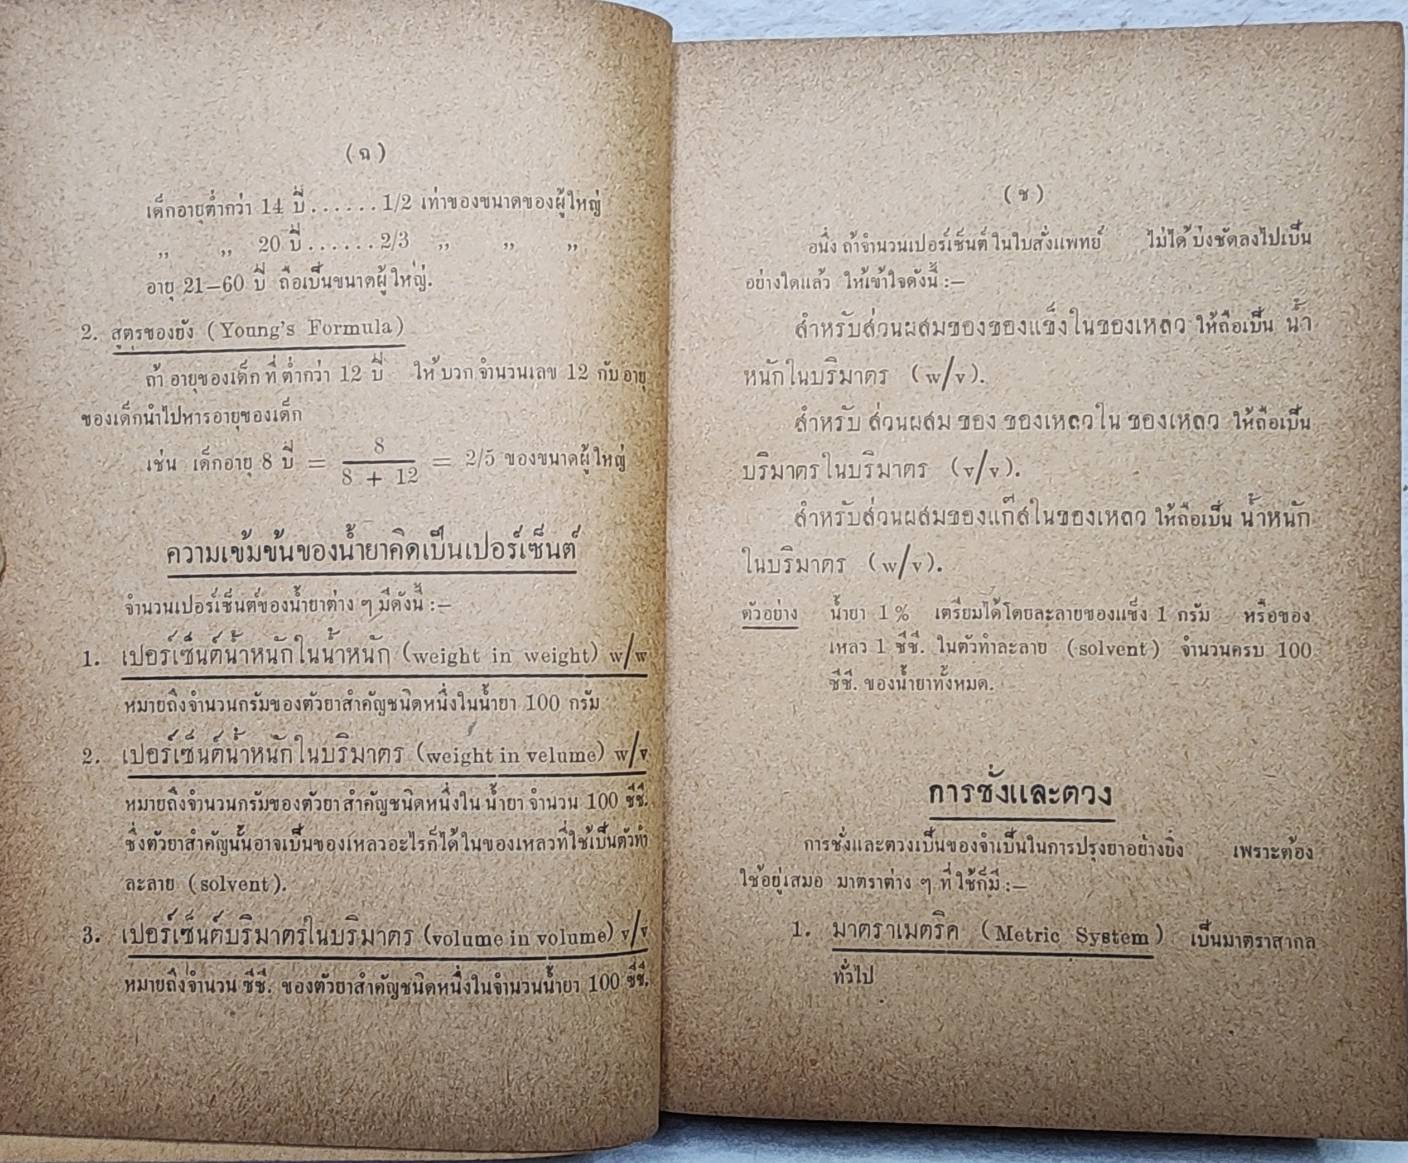 (ฉ)
เด็กอายุต่ำกว่า 14 ปี......1/2 เท่าของขนาดของผู้ใหญ่
,, ,, 20 ปี......2/3 ,, ,, ,,
อายุ 21—60 ปี ถือเป็นขนาดผู้ใหญ่.
2. สูตรของยัง (Young's Formula)
ถ้า อายุของเด็ก ที่ ต่ำกว่า 12 ปี ให้ บวก จำนวนเลข 12 กับ อายุ
ของเด็กนำไปหารอายุของเด็ก
เช่น เด็กอายุ 8 ปี = 8 / 8 + 12 = 2/5 ของขนาดผู้ใหญ่
ความเข้มข้นของน้ำยาคิดเป็นเปอร์เซ็นต์
จำนวนเปอร์เซ็นต์ของน้ำยาต่าง ๆ มีดังนี้ :—
1. เปอร์เซ็นต์น้ำหนักในน้ำหนัก (weight in weight) w/w
หมายถึงจำนวนกรัมของตัวยาสำคัญชนิดหนึ่งในน้ำยา 100 กรัม
2. เปอร์เซ็นต์น้ำหนักในบริมาตร (weight in velume) w/v
หมายถึงจำนวนกรัมของตัวยา สำคัญชนิดหนึ่งใน น้ำยา จำนวน 100 ซีซี.
ซึ่งตัวยาสำคัญนั้นอาจเป็นของเหลวอะไรก็ได้ในของเหลวที่ใช้เป็นตัวทำ
ละลาย (solvent).
3. เปอร์เซ็นต์บริมาตรในบริมาตร (volume in volume) v/v
หมายถึงจำนวน ซีซี. ของตัวยาสำคัญชนิดหนึ่งในจำนวนน้ำยา 100 ซีซี.
(ช)
อนึ่ง ถ้าจำนวนเปอร์เซ็นต์ ในใบสั่งแพทย์ ไม่ได้ บ่งชัดลงไปเป็น
อย่างใดแล้ว ให้เข้าใจดังนี้ :—
สำหรับส่วนผสมของของแข็งในของเหลว ให้ถือเป็น น้ำ
หนักในบริมาตร (w/v).
สำหรับ ส่วนผสม ของ ของเหลวใน ของเหลว ให้ถือเป็น
บริมาตรในบริมาตร (v/v).
สำหรับส่วนผสมของแก๊สในของเหลว ให้ถือเป็น น้ำหนัก
ในบริมาตร (w/v).
ตัวอย่าง น้ำยา 1% เตรียมได้โดยละลายของแข็ง 1 กรัม หรือของ
เหลว 1 ซีซี. ในตัวทำละลาย (solvent) จำนวนครบ 100
ซีซี. ของน้ำยาทั้งหมด.
การชั่งและตวง
การชั่งและตวงเป็นของจำเป็นในการปรุงยาอย่างยิ่ง เพราะต้อง
ใช้อยู่เสมอ มาตราต่าง ๆ ที่ ใช้ก็มี :—
1. มาตราเมตริค (Metric System) เป็นมาตราสากล
ทั่วไป